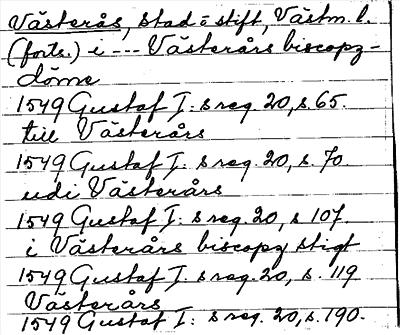 Västerås, stad o stift, Västm. l.
(forts.) i --- Västerårs biscopz-
döme
1549 Gustaf I: s reg. 20, s. 65.
till Västerårs
1549 Gustaf I: s reg. 20, s. 70.
udi Västerårs
1549 Gustaf I: s reg. 20, s 107.
i Västerårs biscopz stigt
1549 Gustaf I. s reg. 20, s. 119
Västerårs
1549 Gustaf I: s reg. 20, s. 190.